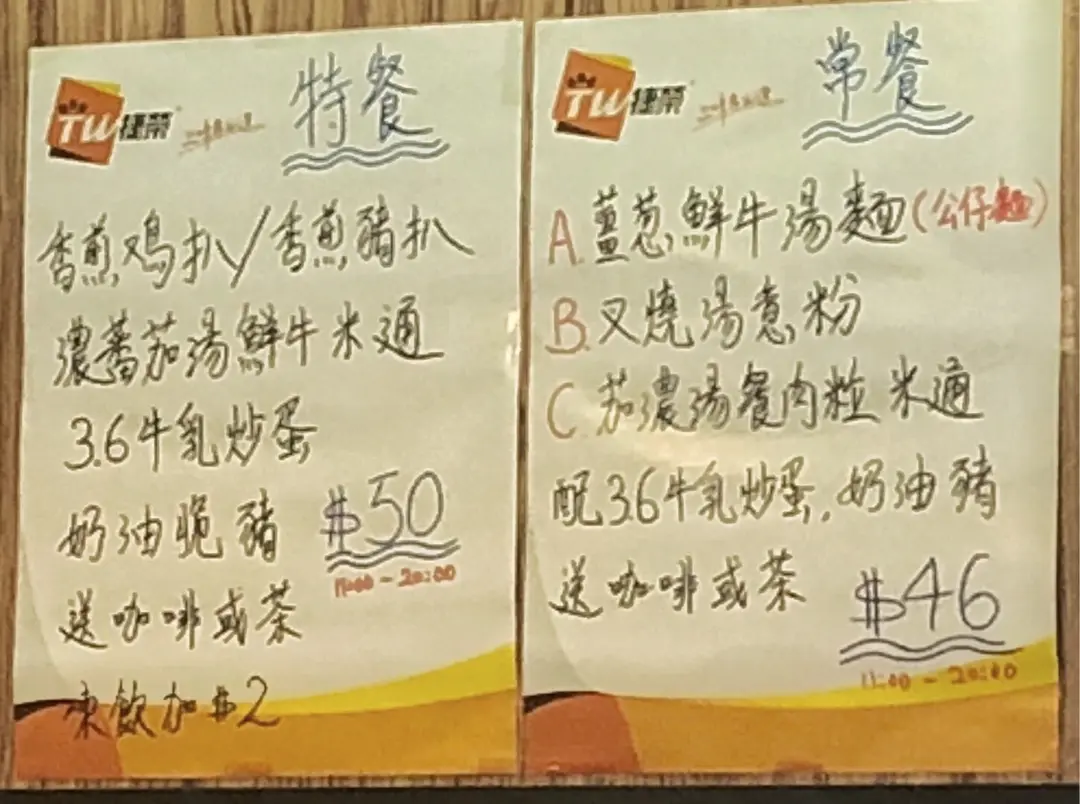 TW捷榮
特餐
香煎鸡扒/香煎豬扒
濃蕃茄湯鮮牛米通
3.6牛乳炒蛋
奶油脆豬 $50
11:00-20:00
送咖啡或茶
凍飲加$2
TW捷榮
常餐
A.薑葱鮮牛湯麵(公仔麵)
B.叉燒湯意粉
C.茄濃湯餐肉粒米通
配3.6牛乳炒蛋,奶油豬
送咖啡或茶
$46
11:00-20:00